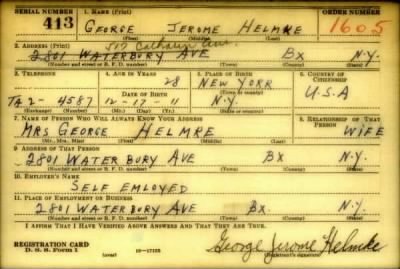 SERIAL NUMBER 1. NAME (Print) ORDER NUMBER
413 GEORGE JEROME HELMKE 1605
(First) (Middle) (Last)
2. ADDRESS (Print) 517 Calhoun Ave.
2801 WATERBURY AVE BX N.Y.
(Number and street or R. F. D. number) (Town) (County) (State)
3. TELEPHONE 4. AGE IN YEARS 5. PLACE OF BIRTH 6. COUNTRY OF CITIZENSHIP
28 NEW YORK
DATE OF BIRTH (Town or county) U.S.A
TA 2-4587 12-17-11 N.Y.
(Exchange) (Number) (Mo.) (Day) (Yr.) (State or country)
7. NAME OF PERSON WHO WILL ALWAYS KNOW YOUR ADDRESS 8. RELATIONSHIP OF THAT PERSON
MRS GEORGE HELMKE WIFE
(Mr., Mrs., Miss) (First) (Middle) (Last)
9. ADDRESS OF THAT PERSON
2801 WATERBURY AVE BX N.Y.
(Number and street or R. F. D. number) (Town) (County) (State)
10. EMPLOYER'S NAME
SELF EMLOYED
11. PLACE OF EMPLOYMENT OR BUSINESS
2801 WATERBURY AVE BX. N.Y.
(Number and street or R. F. D. number) (Town) (County) (State)
I AFFIRM THAT I HAVE VERIFIED ABOVE ANSWERS AND THAT THEY ARE TRUE.
REGISTRATION CARD George Jerome Helmke
D. S. S. Form 1 (over) 16-17105 (Registrant's signature)